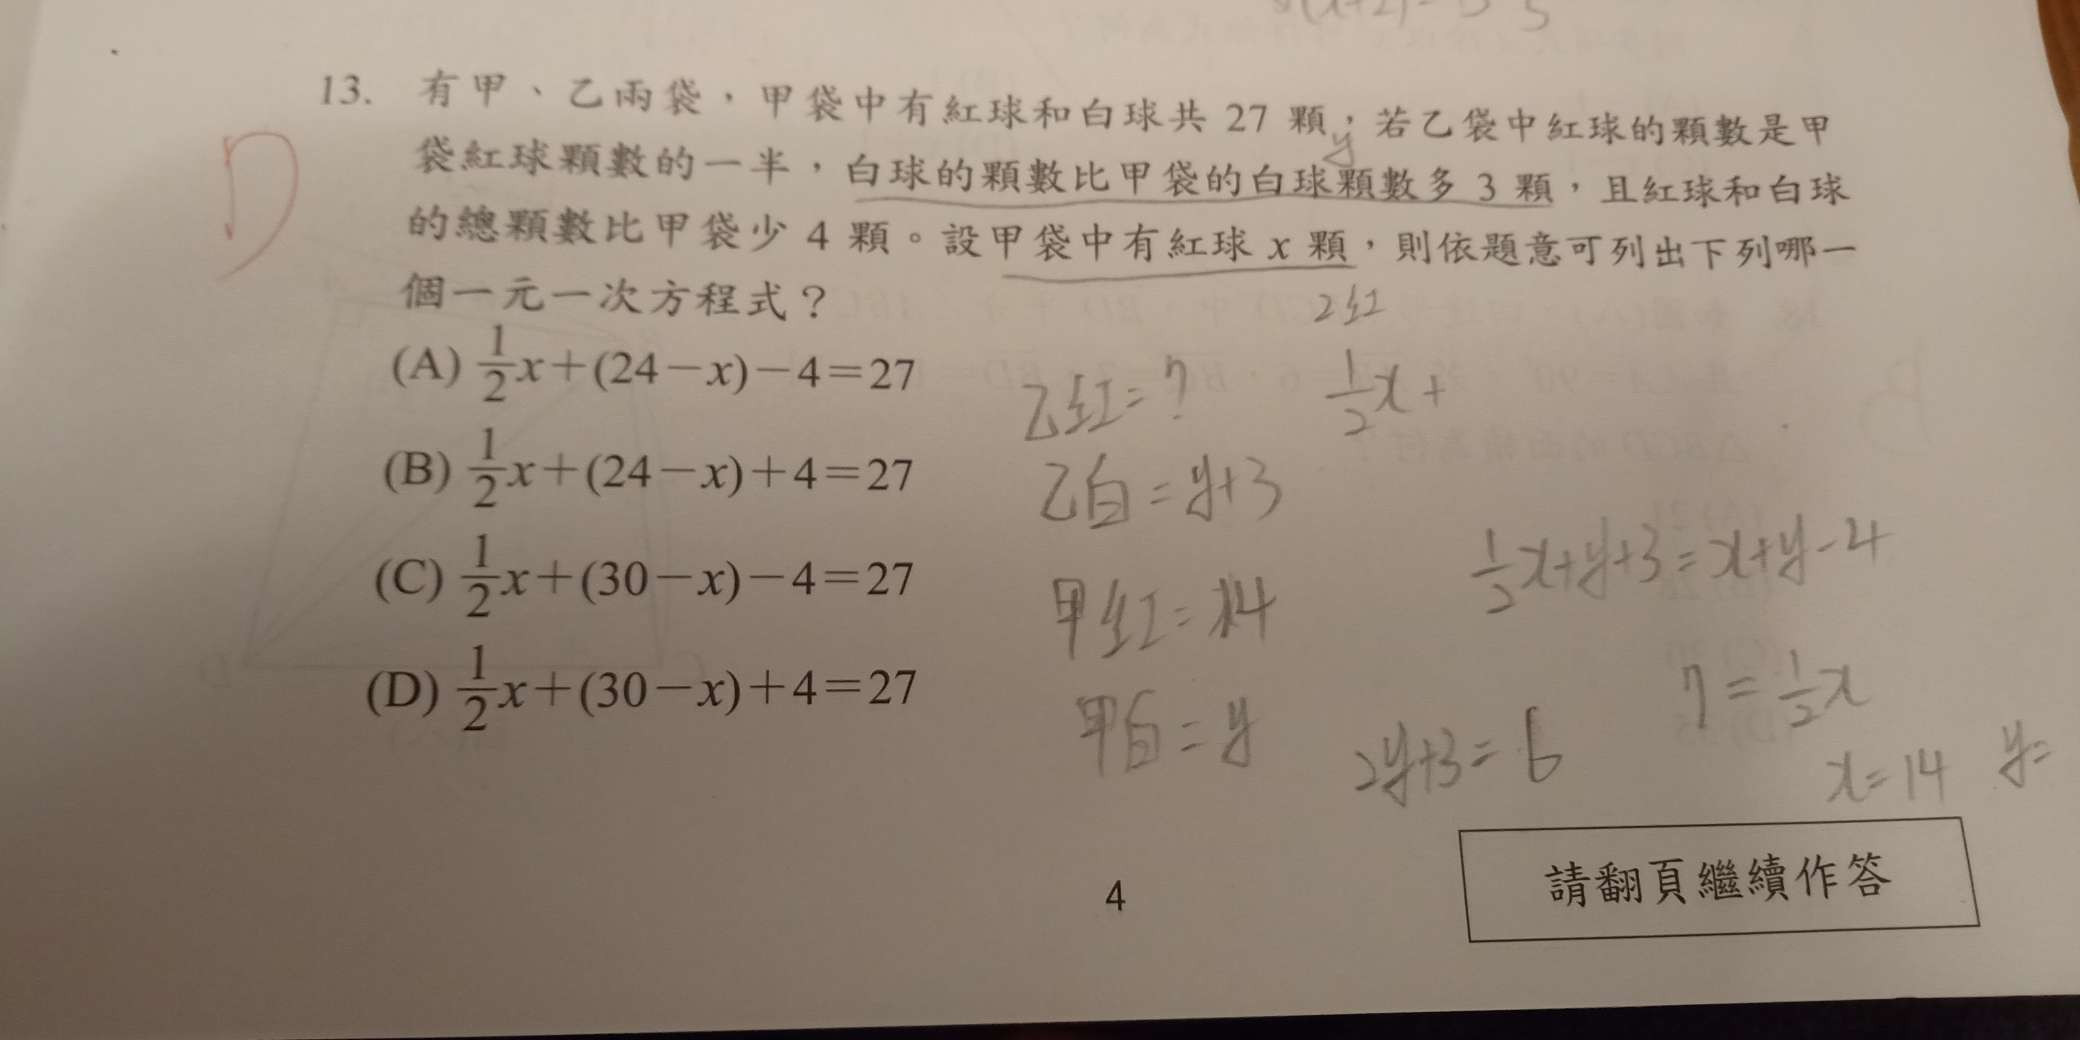 13. 有甲、乙兩袋，甲袋中有紅球和白球共 27 顆；若乙袋中紅球的顆數是甲
y
袋紅球顆數的一半，白球的顆數比甲袋的白球顆數多 3 顆，且紅球和白球
的總顆數比甲袋少 4 顆。設甲袋中有紅球 x 顆，則依題意可列出下列哪一
個一元一次方程式？
D
(A) 1/2 x＋(24－x)－4＝27
(B) 1/2 x＋(24－x)＋4＝27
(C) 1/2 x＋(30－x)－4＝27
(D) 1/2 x＋(30－x)＋4＝27
乙紅=?
乙白=y+3
甲白=y
1/2 x+
1/2 x+y+3=x+y-4
7=1/2 x
x=14 y=
2y+3=6
4
請翻頁繼續作答